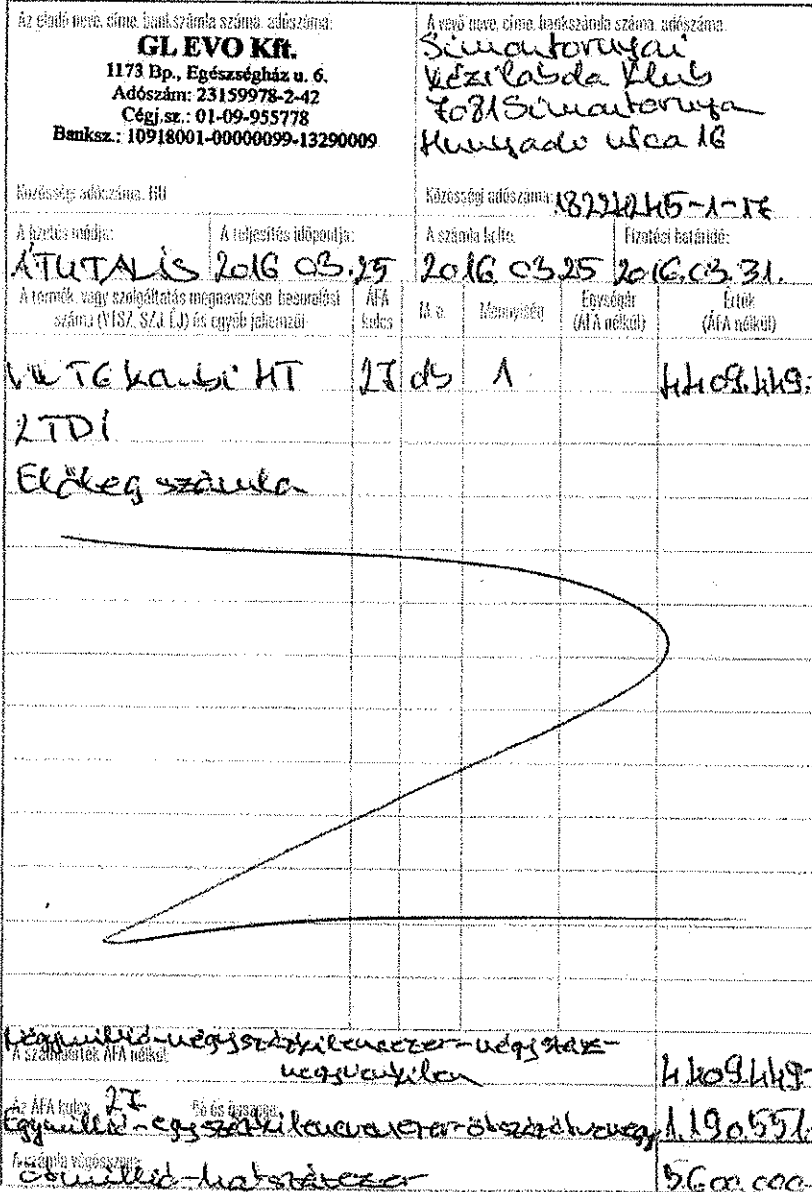 Az eladó neve, címe, bankszámla száma, adószáma:
GL EVO Kft.
1173 Bp., Egészségház u. 6.
Adószám: 23159978-2-42
Cégj.sz.: 01-09-955778
Banksz.: 10918001-00000099-13290009
Közösségi adószáma: HU
A vevő neve, címe, bankszámla száma, adószáma:
Simontornyai
Kézilabda Klub
7081 Simontornya
Hunyadi utca 16
Közösségi adószáma:
A fizetés módja:
ÁTUTALÁS
A teljesítés időpontja:
2016 03.25
A számla kelte:
2016 03.25
Fizetési határidő:
2016.03.31.
A termék, vagy szolgáltatás megnevezése, besorolási
száma (VTSZ, SZJ, ÉJ) és egyéb jellemzői
ÁFA
kulcs
M. e.
Mennyiség
Egységár
(ÁFA nélkül)
Érték
(ÁFA nélkül)
T6 kombi HT 27 db 1 4.409.449.-
2 TDI
Előleg számla
Négymillió-négyszázkilencezer-négyszáz-
negyvenkilenc
A számlaérték ÁFA nélkül: 4.409.449-
Az ÁFA kulcs 27 %-a és összege:
Egymillió-egyszázkilencvenezer-ötszázötvenegy 1.190.551.-
A számla végösszege:
ötmillió-hatszázezer 5.600.000-